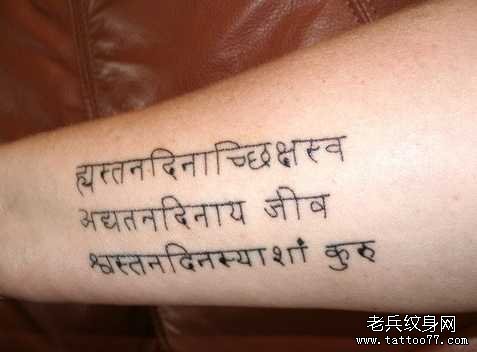 ह्यस्तनदिनाच्छिक्षस्व
अद्यतनदिनाय जीव
श्वस्तनदिनस्याशां कुरु
老兵纹身网
www.tattoo77.com